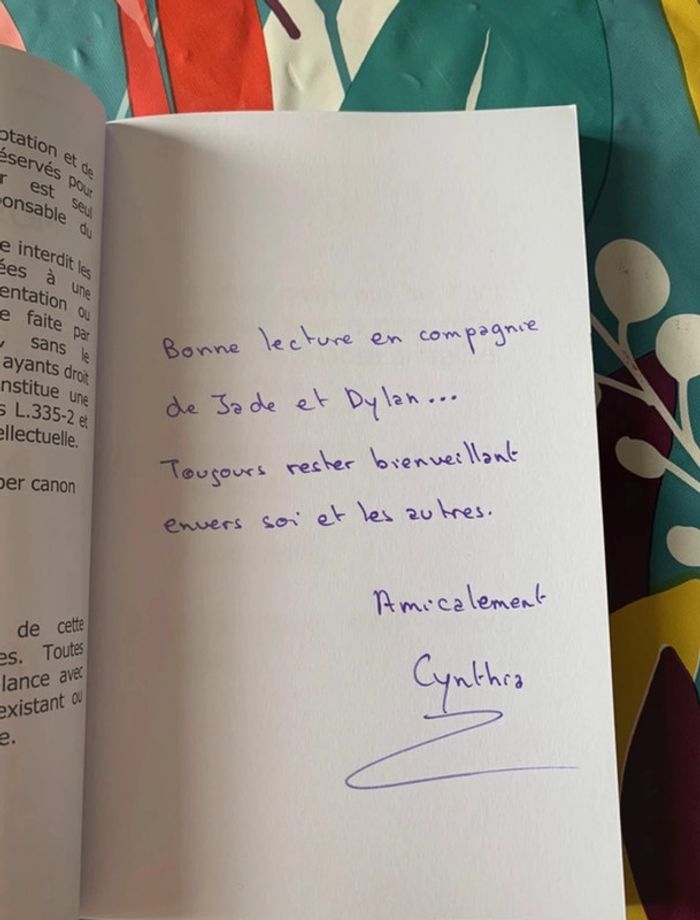 ptation et de
éservés pour
r est seul
onsable du
e interdit les
ées à une
entation ou
e faite par
, sans le
ayants droit
nstitue une
s L.335-2 et
ellectuelle.
per canon
de cette
es. Toutes
lance avec
existant ou
e.
Bonne lecture en compagnie
de Jade et Dylan...
Toujours rester bienveillant
envers soi et les autres.
Amicalement
Cynthia